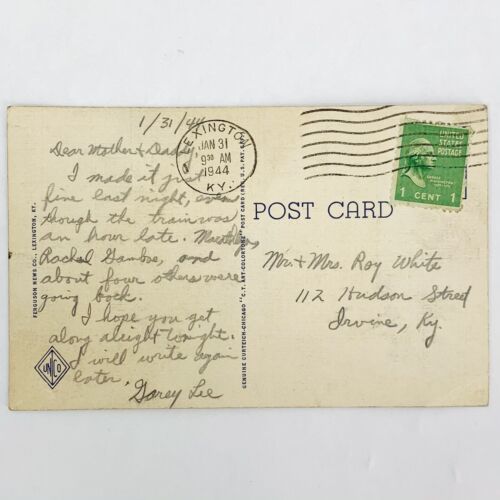 1/31/44
Dear Mother & Daddy,
I made it just
fine last night, even
though the train was
an hour late.
Rachel Gamboe, and
about four others were
going back.
I hope you get
along alright tonight.
I will write again
later.
Garey Lee
LEXINGTON
JAN 31
9 30 AM
1944
KY.
UNITED
STATES
POSTAGE
1 CENT 1
POST CARD
Mr. & Mrs. Roy White
112 Hudson Street
Irvine, Ky.
FERGUSON NEWS CO., LEXINGTON, KY.
GENUINE CURTEICH-CHICAGO "C.T. ART-COLORTONE" POST CARD (REG. U.S. PAT. OFF.)